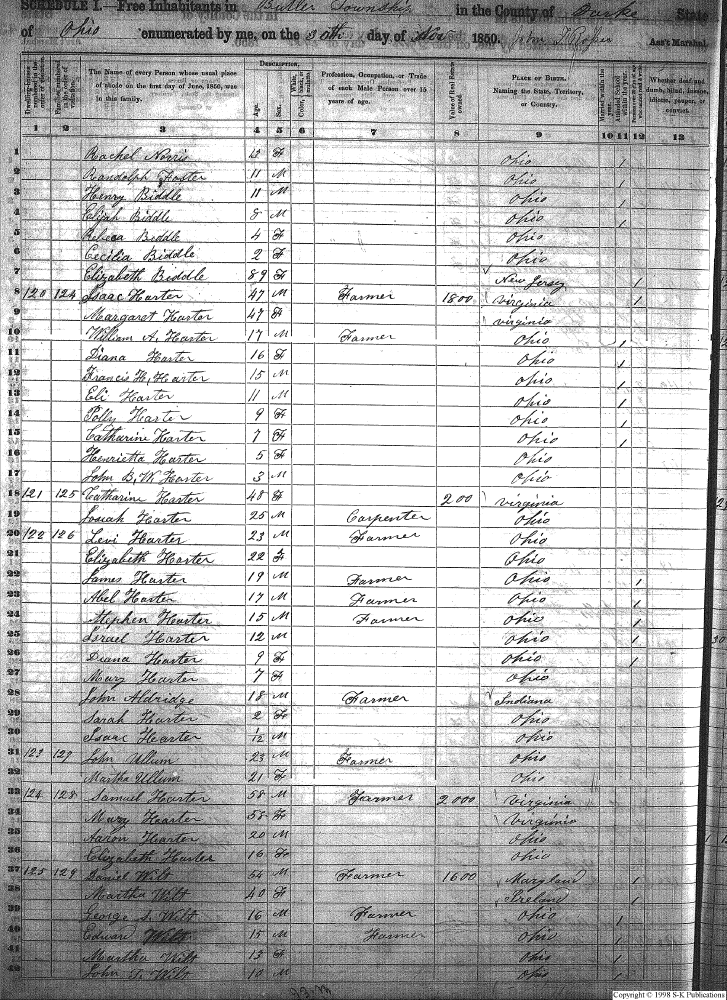 SCHEDULE I.—Free Inhabitants in Butler Township in the County of Darke State
of Ohio enumerated by me, on the 30th day of Nov 1850. Ass't Marshal.
DESCRIPTION.
The Name of every Person whose usual place of abode on the first day of June, 1850, was in this family.
Age.
Sex.
Profession, Occupation, or Trade of each Male Person over 15 years of age.
Value of Real Estate owned.
PLACE OF BIRTH. Naming the State, Territory, or Country.
Whether deaf and dumb, blind, insane, idiotic, pauper, or convict.
1 2 3 4 5 6 7 8 9 10 11 12 13
1 Rachel Norris 13 F Ohio /
2 Randolph Foster 11 M Ohio /
3 Henry Biddle 11 M Ohio /
4 Elijah Biddle 8 M Ohio /
5 Rebeca Biddle 4 F Ohio
6 Cecilia Biddle 2 F Ohio
7 Elizabeth Biddle 89 F New Jersey /
8 120 124 Isaac Harter 47 M Farmer 1800 Virginia /
9 Margaret Harter 47 F Virginia
10 William A. Harter 17 M Farmer Ohio /
11 Diana Harter 16 F Ohio /
12 Francis H. Harter 15 M Ohio /
13 Eli Harter 11 M Ohio /
14 Polly Harter 9 F Ohio /
15 Catharine Harter 7 F Ohio /
16 Henrietta Harter 5 F Ohio
17 John B. W. Harter 3 M Ohio
18 121 125 Catharine Harter 48 F 200 Virginia
19 Josiah Harter 25 M Carpenter Ohio
20 122 126 Levi Harter 23 M Farmer Ohio
21 Elizabeth Harter 22 F Ohio
22 James Harter 19 M Farmer Ohio /
23 Abel Harter 17 M Farmer Ohio /
24 Stephen Harter 15 M Farmer Ohio /
25 Israel Harter 12 M Ohio /
26 Diana Harter 9 F Ohio /
27 Mary Harter 7 F Ohio
28 John Aldridge 18 M Farmer Indiana
29 Sarah Harter 2 F Ohio
30 Isaac Harter /12 M Ohio
31 123 127 John Ullum 23 M Farmer Ohio
32 Martha Ullum 21 F Ohio
33 124 128 Samuel Harter 58 M Farmer 2000 Virginia
34 Mary Harter 58 F Virginia
35 Aaron Harter 20 M Ohio
36 Elizabeth Harter 16 F Ohio
37 125 129 Daniel Wilt 54 M Farmer 1600 Maryland /
38 Martha Wilt 40 F Ireland
39 George S. Wilt 16 M Farmer Ohio /
40 Edward Wilt 15 M Farmer Ohio /
41 Martha Wilt 13 F Ohio /
42 John T. Wilt 10 M Ohio /
Copyright © 1998 S-K Publications